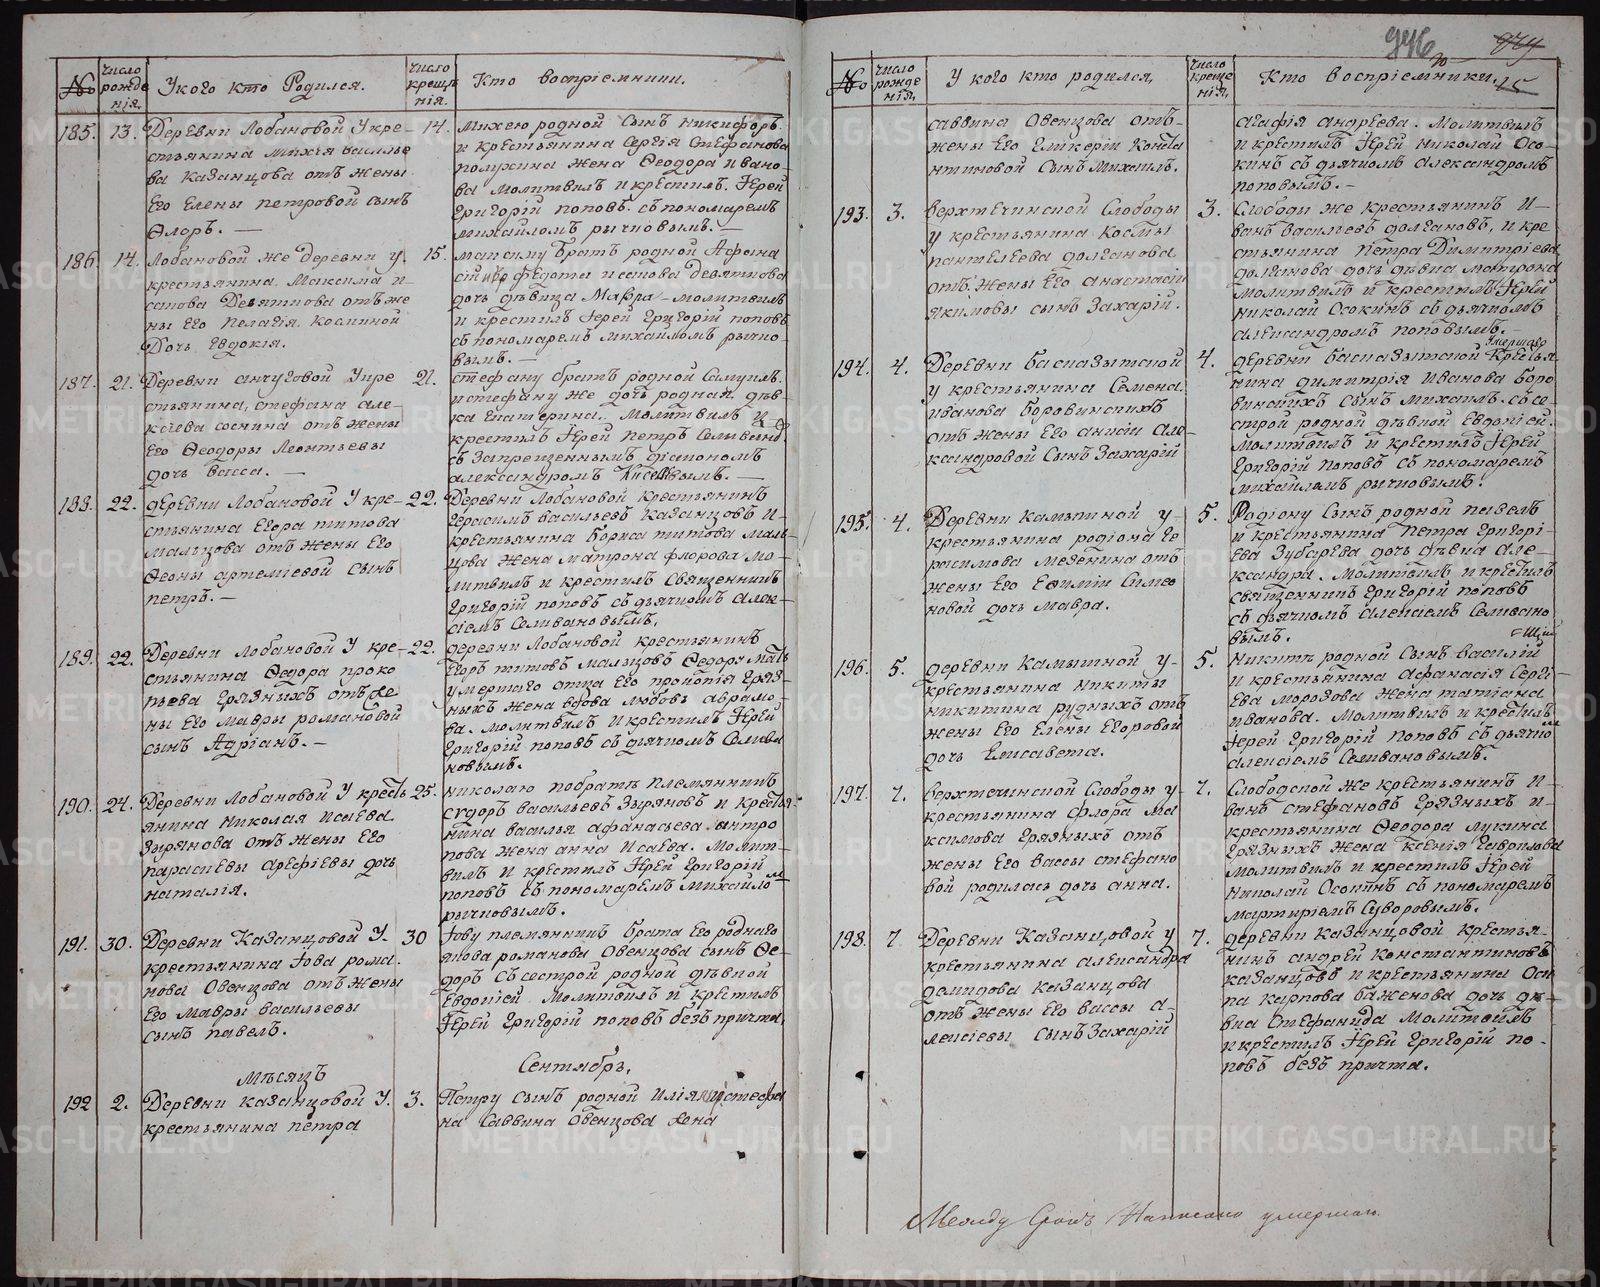 №
число рожде нія.
У кого кто Родился.
число крещѣ нія.
Кто воспріемники.
185. 13. Деревни Лобановой У кре-
стьянина Михея василье
ва Казанцова отъ жены
Его Елены петровой сынъ
Флоръ. —
14. михею родной сынъ никифоръ
и крестьянина Сергія Стефанова
жена Ѳеодора ивано-
ва молитвилъ и крестилъ Іерей
Григорій поповъ съ пономаремъ
михайломъ рычковымъ. —
186. 14. Лобановой же деревни у
крестьянина Максима и-
сакова Девяткова отъ же
ны Его Пелагія Косминой
Дочь Евдокія.
15. максиму братъ родной Афана
сій исакова Девяткова
дочь дѣвица Мавра — молитвилъ
и крестилъ Іерей Григорій поповъ
съ пономаремъ михайломъ рычко-
вымъ. —
187. 21. Деревни анчуговой У кре
стьянина, стефана але-
ксѣева соснина отъ жены
Его Ѳеодоры Леонтьевы
дочь васса. —
21. стефану братъ родной Самуилъ
и стефану же дочь родная дѣв-
ка Екатерина. Молитвилъ и
крестилъ Іерей Петръ Селивано
съ запрещеннымъ діакономъ
александромъ Киселевымъ. —
188. 22. деревни Лобановой У кре-
стьянина Егора титова
Мальцова отъ жены Его
Ѳеоны артеміевой сынъ
петръ. —
22. Деревни Лобановой Крестьянинъ
Герасимъ васильевъ Казанцовъ и-
крестьянина бориса титова маль-
цова жена матрона флорова мо-
литвилъ и крестилъ священникъ
Григорій поповъ съ дьячкомъ алек-
сіемъ Селивановымъ.
189. 22. Деревни Лобановой У кре-
стьянина Ѳедора проко
пьева Грязныхъ отъ же
ны Его Мавры романовой
сынъ Адріанъ. —
22. деревни Лобановой крестьянинъ
Егоръ титовъ мальцовъ Ѳедора мать
умершаго отца Его прокопія Гряз-
ныхъ жена вдова любовь абрамо-
ва. молитвилъ и крестилъ Іерей
Григорій поповъ съ дьячкомъ Селива
новымъ.
190. 24. Деревни Лобановой У кресть
янина николая исаева
Зырянова отъ жены Его
параскевы арефіевы дочь
наталія.
25. николаю побратъ племянникъ
сидоръ васильевъ Зыряновъ и кресть-
нина василья афанасьева антро
пова жена анна исаева. Молит-
вилъ и крестилъ Іерей Григорій
поповъ съ пономаремъ михайломъ
рычковымъ.
191. 30. Деревни Казанцовой У.
крестьянина Іова рома-
нова Овенцова отъ жены
Его мавры васильевы
сынъ павелъ.
30 Іову племянникъ брата Его роднаго
якова романова Овенцова сынъ Ѳе-
доръ съ сестрой родной дѣвкой
Евдокіей. Молитвилъ и крестилъ
Іерей Григорій поповъ безъ причта.
Мѣсяцъ
Сентябрь.
192 2. Деревни казанцовой У.
крестьянина петра
3. Петру сынъ родной илія и стефа
на Саввина Овенцова жена
946
974
15
№
число рожде нія,
У кого кто родился,
число креще нія,
Кто воспріемники.
саввина Овенцова отъ-
жены Его Гликеріи Конста
нтиновой сынъ михаилъ.
агафія андреева. Молитвилъ
и крестилъ Іерей Николай Осо-
кинъ съ дьячкомъ александромъ
поповымъ. —
193. 3. верхтечинской Слободы
у крестьянина Космы
пантелеева долганова
отъ жены Его анастасіи
якимовы сынъ Захарій.
3. Слободы же крестьянинъ И-
ванъ васильевъ долгановъ, и кре
стьянина петра Димитріева
долганова дочь дѣвка матрона
молитвилъ и крестилъ Іерей
николай Осокинъ съ дьячкомъ
александромъ поповымъ. —
194. 4. Деревни басказыкской
у крестьянина Семена
иванова боровинскихъ
отъ жены Его анисіи але-
ксандровой сынъ Захарій
умершаго
4. деревни басказыкской крестья-
нина димитрія иванова боро
винскихъ сынъ михаилъ съ се-
строй родной дѣвкой Евдокіей.
молитвилъ и крестилъ Іерей
Григорій поповъ съ пономаремъ
михайломъ рычковымъ.
195. 4. Деревни камышной у-
крестьянина родіона Ге
расимова меденина отъ
жены Его Евѳиміи Симео
новой дочь мавра.
5. Родіону сынъ родной павелъ
и крестьянина Петра Григорі-
ева Зубарева дочь дѣвка але-
ксандра. Молитвилъ и крестилъ
священникъ Григорій поповъ
съ дьячкомъ алексіемъ Селивано
вымъ.
196. 5. деревни камышной у-
крестьянина никиты
никитина рудныхъ отъ
жены Его Елены Егоровой
дочь Елисавета.
5. никитѣ родной сынъ василій
и крестьянина афанасія Сергі-
ева морозова жена татіана
иванова. Молитвилъ и крестилъ
Іерей Григорій поповъ съ дьячко
алексіемъ Селивановымъ.
197. 7. верхтечинской Слободы у-
крестьянина флора ма
ксимова Грязныхъ отъ
жены Его вассы стефано
вой родилась дочь анна.
7. Слободской же крестьянинъ И-
ванъ стефановъ Грязныхъ и-
крестьянина Ѳеодора лукина
Грязныхъ жена ксенія Гаврилова
молитвилъ и крестилъ Іерей
николай Осокинъ съ пономаремъ
мартиріемъ Суворовымъ.
198. 7 Деревни Казанцовой у
крестьянина александра
демидова казанцова
отъ жены Его вассы а-
лексіевы сынъ Захарій
7. деревни казанцовой крестья-
нинъ андрей константиновъ
казанцовъ и крестьянина Оси
па карпова баженова дочь дѣ-
вка стефанида Молитвилъ
и крестилъ Іерей Григорій по-
повъ безъ причта.
Между строкъ Написано умершаго.